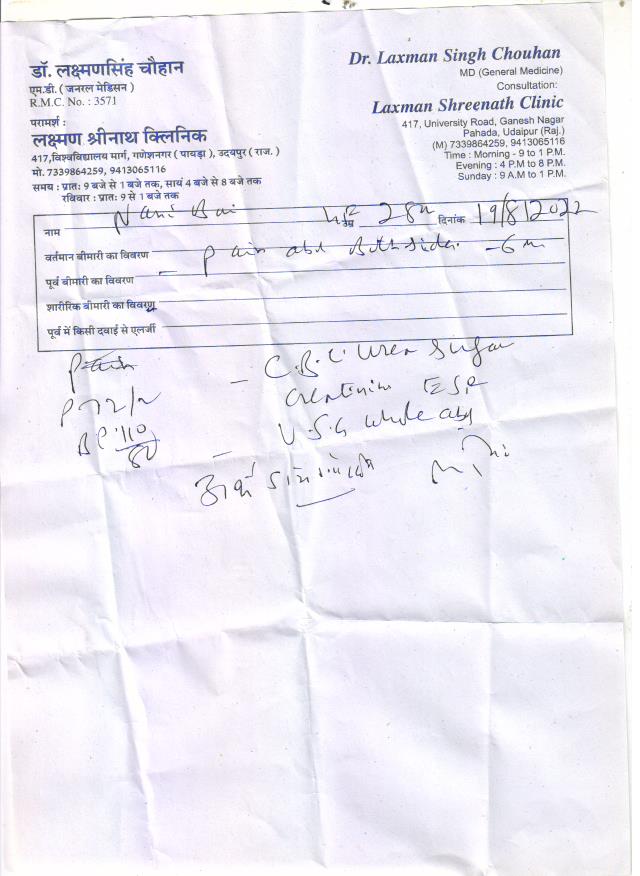 डॉ. लक्ष्मणसिंह चौहान
एम.डी. ( जनरल मेडिसन )
R.M.C. No. : 3571
परामर्श :
लक्ष्मण श्रीनाथ क्लिनिक
417,विश्वविद्यालय मार्ग, गणेशनगर ( पायड़ा ), उदयपुर ( राज. )
मो. 7339864259, 9413065116
समय : प्रातः 9 बजे से 1 बजे तक, सायं 4 बजे से 8 बजे तक
रविवार : प्रातः 9 से 1 बजे तक
Dr. Laxman Singh Chouhan
MD (General Medicine)
Consultation:
Laxman Shreenath Clinic
417, University Road, Ganesh Nagar
Pahada, Udaipur (Raj.)
(M) 7339864259, 9413065116
Time : Morning - 9 to 1 P.M.
Evening : 4 P.M to 8 P.M.
Sunday : 9 A.M to 1 P.M.
नाम Nani Bai उम्र 28 दिनांक 19/8/2022
वर्तमान बीमारी का विवरण Pain abd Both sides - 6 m
पूर्व बीमारी का विवरण
शारीरिक बीमारी का विवरण
पूर्व में किसी दवाई से एलर्जी
Pain
P 72/m
BP 110/80
- C.B.C. Urea Sugar
Creatinine ESR
- U.S.G whole abd